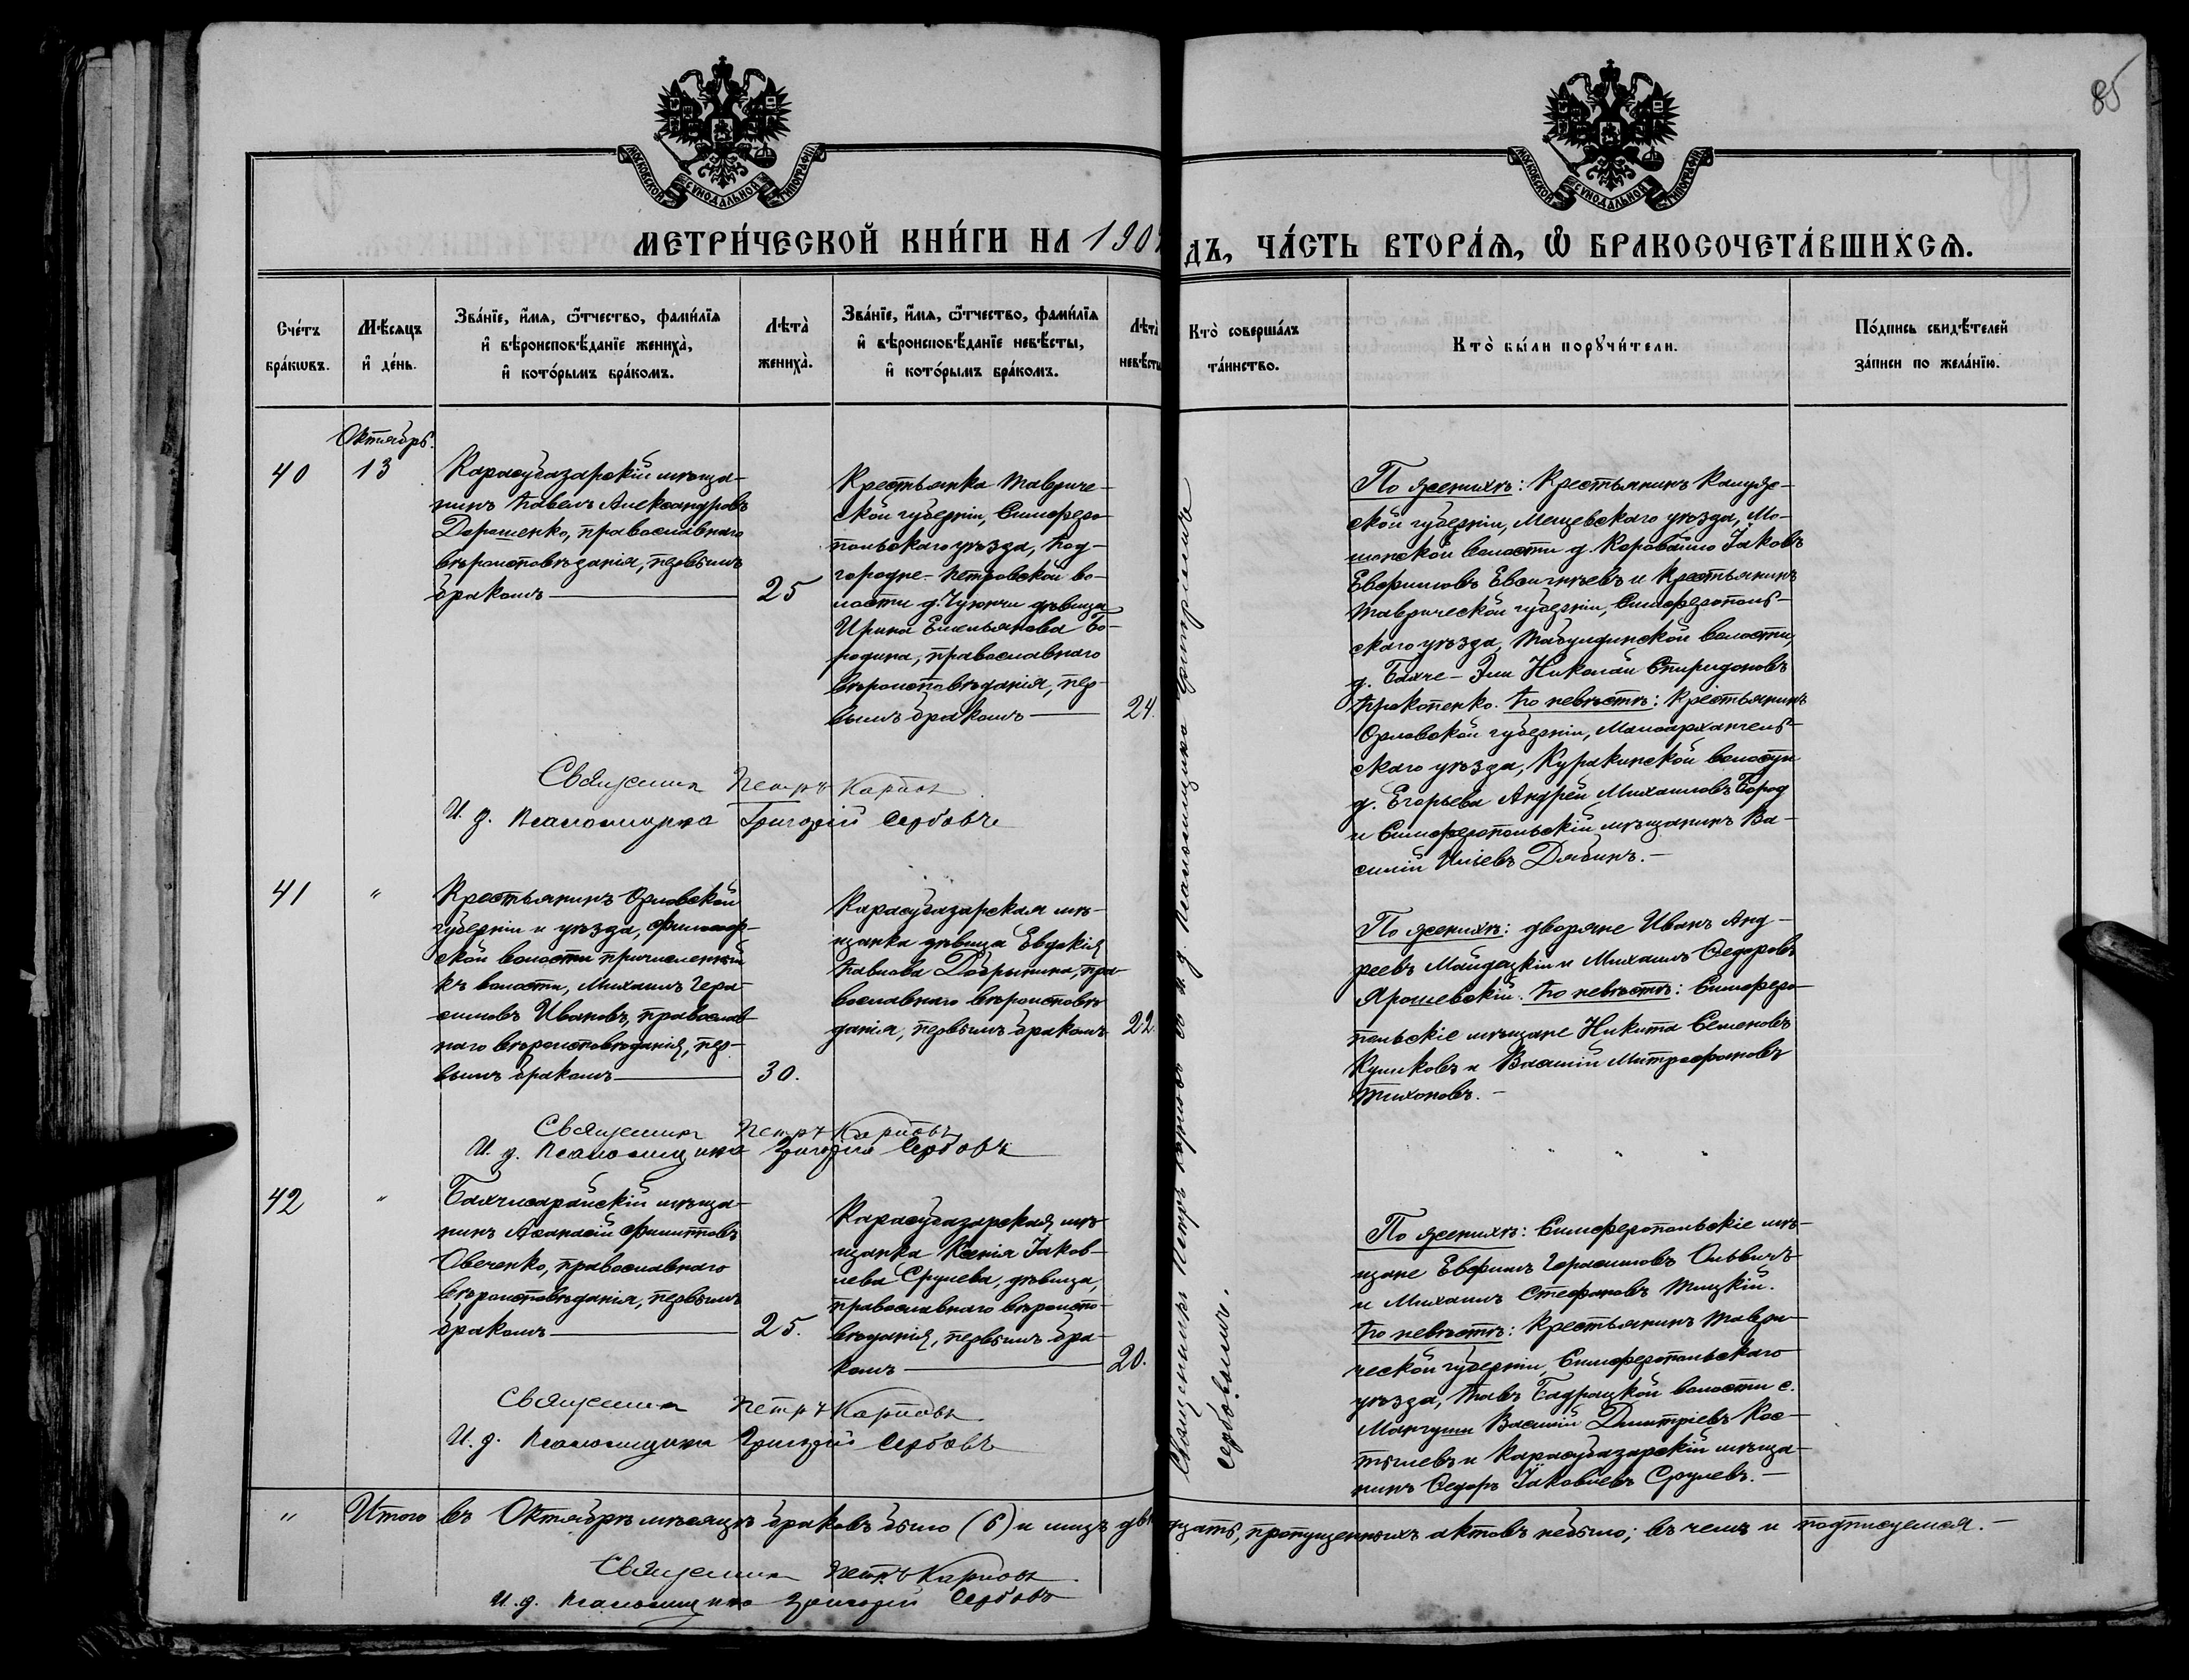 85
МОСКОВСКОЙ СѴНОДАЛЬНОЙ ТИПОГРАФІИ
МОСКОВСКОЙ СѴНОДАЛЬНОЙ ТИПОГРАФІИ
МЕТРИ́ЧЕСКОЙ КНИ́ГИ НА 190
ДЪ, ЧА́СТЬ ВТОРА́Ѧ, Ѡ БРАКОСОЧЕТА́ВШИХСѦ.
Сче́тъ бра́кѡвъ.
Мѣ́сѧцъ и҆ де́нь.
Зва́нїе, и҆́мѧ, ѻ҆́тчество, фами́лїѧ
и҆ вѣроисповѣ́данїе жениха̀,
и҆ кото́рымъ бра́комъ.
Лѣта̀ жениха̀.
Зва́нїе, и҆́мѧ, ѻ҆́тчество, фами́лїѧ
и҆ вѣроисповѣ́данїе невѣ́сты,
и҆ кото́рымъ бра́комъ.
Лѣта̀ невѣ́сты
Кто̀ соверша́лъ та́инство.
Кто̀ бы́ли порꙋчи́тели.
По́дпись свидѣ́телей
за́писи по жела́нїю.
Октябрь.
40
13
Карасубазарскій мѣща-
нинъ Павелъ Александровъ
Дорошенко, православнаго
вѣроисповѣданія, первымъ
бракомъ
25
Крестьянка Тавриче-
ской губерніи, Симферо-
польскаго уѣзда, Под-
городне-Петровской во-
лости д. Чуюнчи дѣвица
Ирина Емельянова Бо-
родина, православнаго
вѣроисповѣданія, пер-
вымъ бракомъ
24.
По женихѣ: Крестьянинъ Калуж-
ской губерніи, Мещевскаго уѣзда, Мо-
шонской волости д. Коровайно Іаковъ
Евфимовъ Евсигнѣевъ и Крестьянинъ
Таврической губерніи, Симферополь-
скаго уѣзда, Табулдинской волости,
д. Бахче-Эли Николай Спиридоновъ
Прокопенко. По невѣстѣ: Крестьянинъ
Орловской губерніи, Малоархангель-
скаго уѣзда, Куракинской волости
д. Егорьева Андрей Михаиловъ Бород
и Симферопольскій мѣщанинъ Ва-
силій Иліевъ Дябинъ.
Священник Петръ Карпов
И. д. Псаломщика Григорій Сербовъ
41
"
Крестьянинъ Орловской
губерніи и уѣзда,
ской волости причисленный
къ волости, Михаилъ Гера-
симовъ Ивановъ, православ-
наго вѣроисповѣданія, пер-
вымъ бракомъ
30.
Карасубазарская мѣ-
щанка дѣвица Евдокія
Павлова Добрынина, пра-
вославнаго вѣроисповѣ-
данія, первымъ бракомъ
22.
По женихѣ: дворяне Иванъ Анд-
реевъ Майдацкій и Михаилъ Ѳедоровъ
Ярошевскій. По невѣстѣ: Симферо-
польскіе мѣщане Никита Семеновъ
Куликовъ и Василій Митрофановъ
Тихоновъ.
Священник Петръ Карповъ
И. д. Псаломщика Григорій Сербовъ
42
"
Бахчисарайскій мѣща-
нинъ Аѳанасій Филипповъ
Овеченко, православнаго
вѣроисповѣданія, первымъ
бракомъ
25.
Карасубазарская мѣ-
щанка Ксенія Іаков-
лева Срулева, дѣвица,
православнаго вѣроиспо-
вѣданія, первымъ бра-
комъ
20.
По женихѣ: Симферопольскіе мѣ-
щане Евфимъ Герасимовъ Ольвичъ
и Михаилъ Стефановъ Тицкій.
По невѣстѣ: Крестьянинъ Таври-
ческой губерніи, Симферопольскаго
уѣзда, Тавъ Бадрацкой волости с.
Мангуши Василій Дмитріевъ Кос-
тылевъ и Карасубазарскій мѣща-
нинъ Ѳедоръ Іаковлевъ Срулевъ.
Священник Петръ Карповъ
И. д. Псаломщика Григорій Сербовъ
Священникъ Петръ Карповъ съ и. д. Псаломщика Григоріемъ
Сербовымъ.
"
Итого въ Октябрѣ мѣсяцѣ браковъ было (6) и лицъ двѣ
надцать, пропущенныхъ актовъ небыло; въ чемъ и подписуемся.
Священник Петръ Карповъ
И. д. Псаломщика Григорій Сербовъ